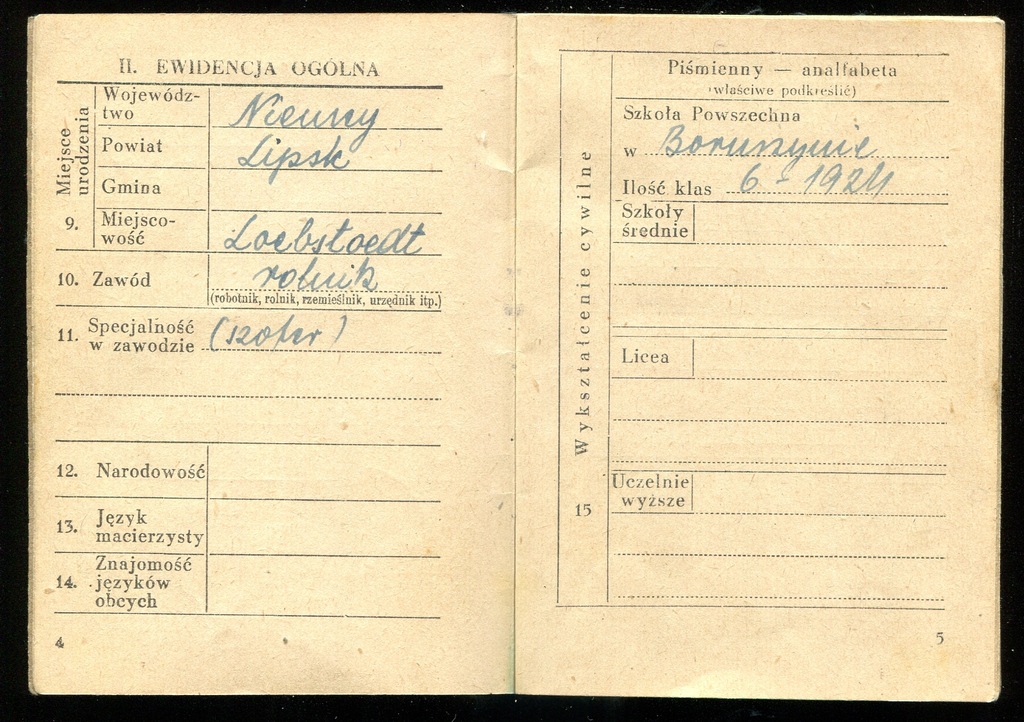 II. EWIDENCJA OGÓLNA
Miejsce urodzenia
9.
Województwo Niemcy
Powiat Lipsk
Gmina
Miejscowość Loebstoedt
10. Zawód rolnik
(robotnik, rolnik, rzemieślnik, urzędnik itp.)
11. Specjalność
w zawodzie (szofer)
12. Narodowość
13. Język
macierzysty
14. Znajomość
języków
obcych
4
Piśmienny — analfabeta
(właściwe podkreślić)
Wykształcenie cywilne
15
Szkoła Powszechna
w
Ilość klas 6 - 1924
Szkoły
średnie
Licea
Uczelnie
wyższe
5